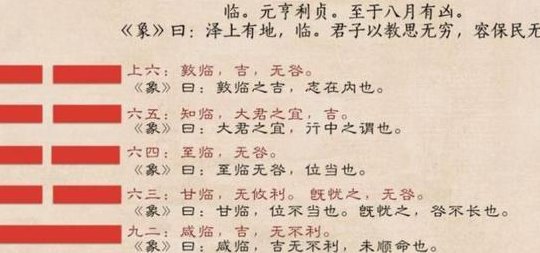 临。元亨利贞。至于八月有凶。
《象》曰：泽上有地，临。君子以教思无穷，容保民无
上六：敦临，吉，无咎。
《象》曰：敦临之吉，志在内也。
六五：知临，大君之宜，吉。
《象》曰：大君之宜，行中之谓也。
六四：至临，无咎。
《象》曰：至临无咎，位当也。
六三：甘临，无攸利。既忧之，无咎。
《象》曰：甘临，位不当也。既忧之，咎不长也。
九二：咸临，吉，无不利。
《象》曰：咸临，吉无不利，未顺命也。